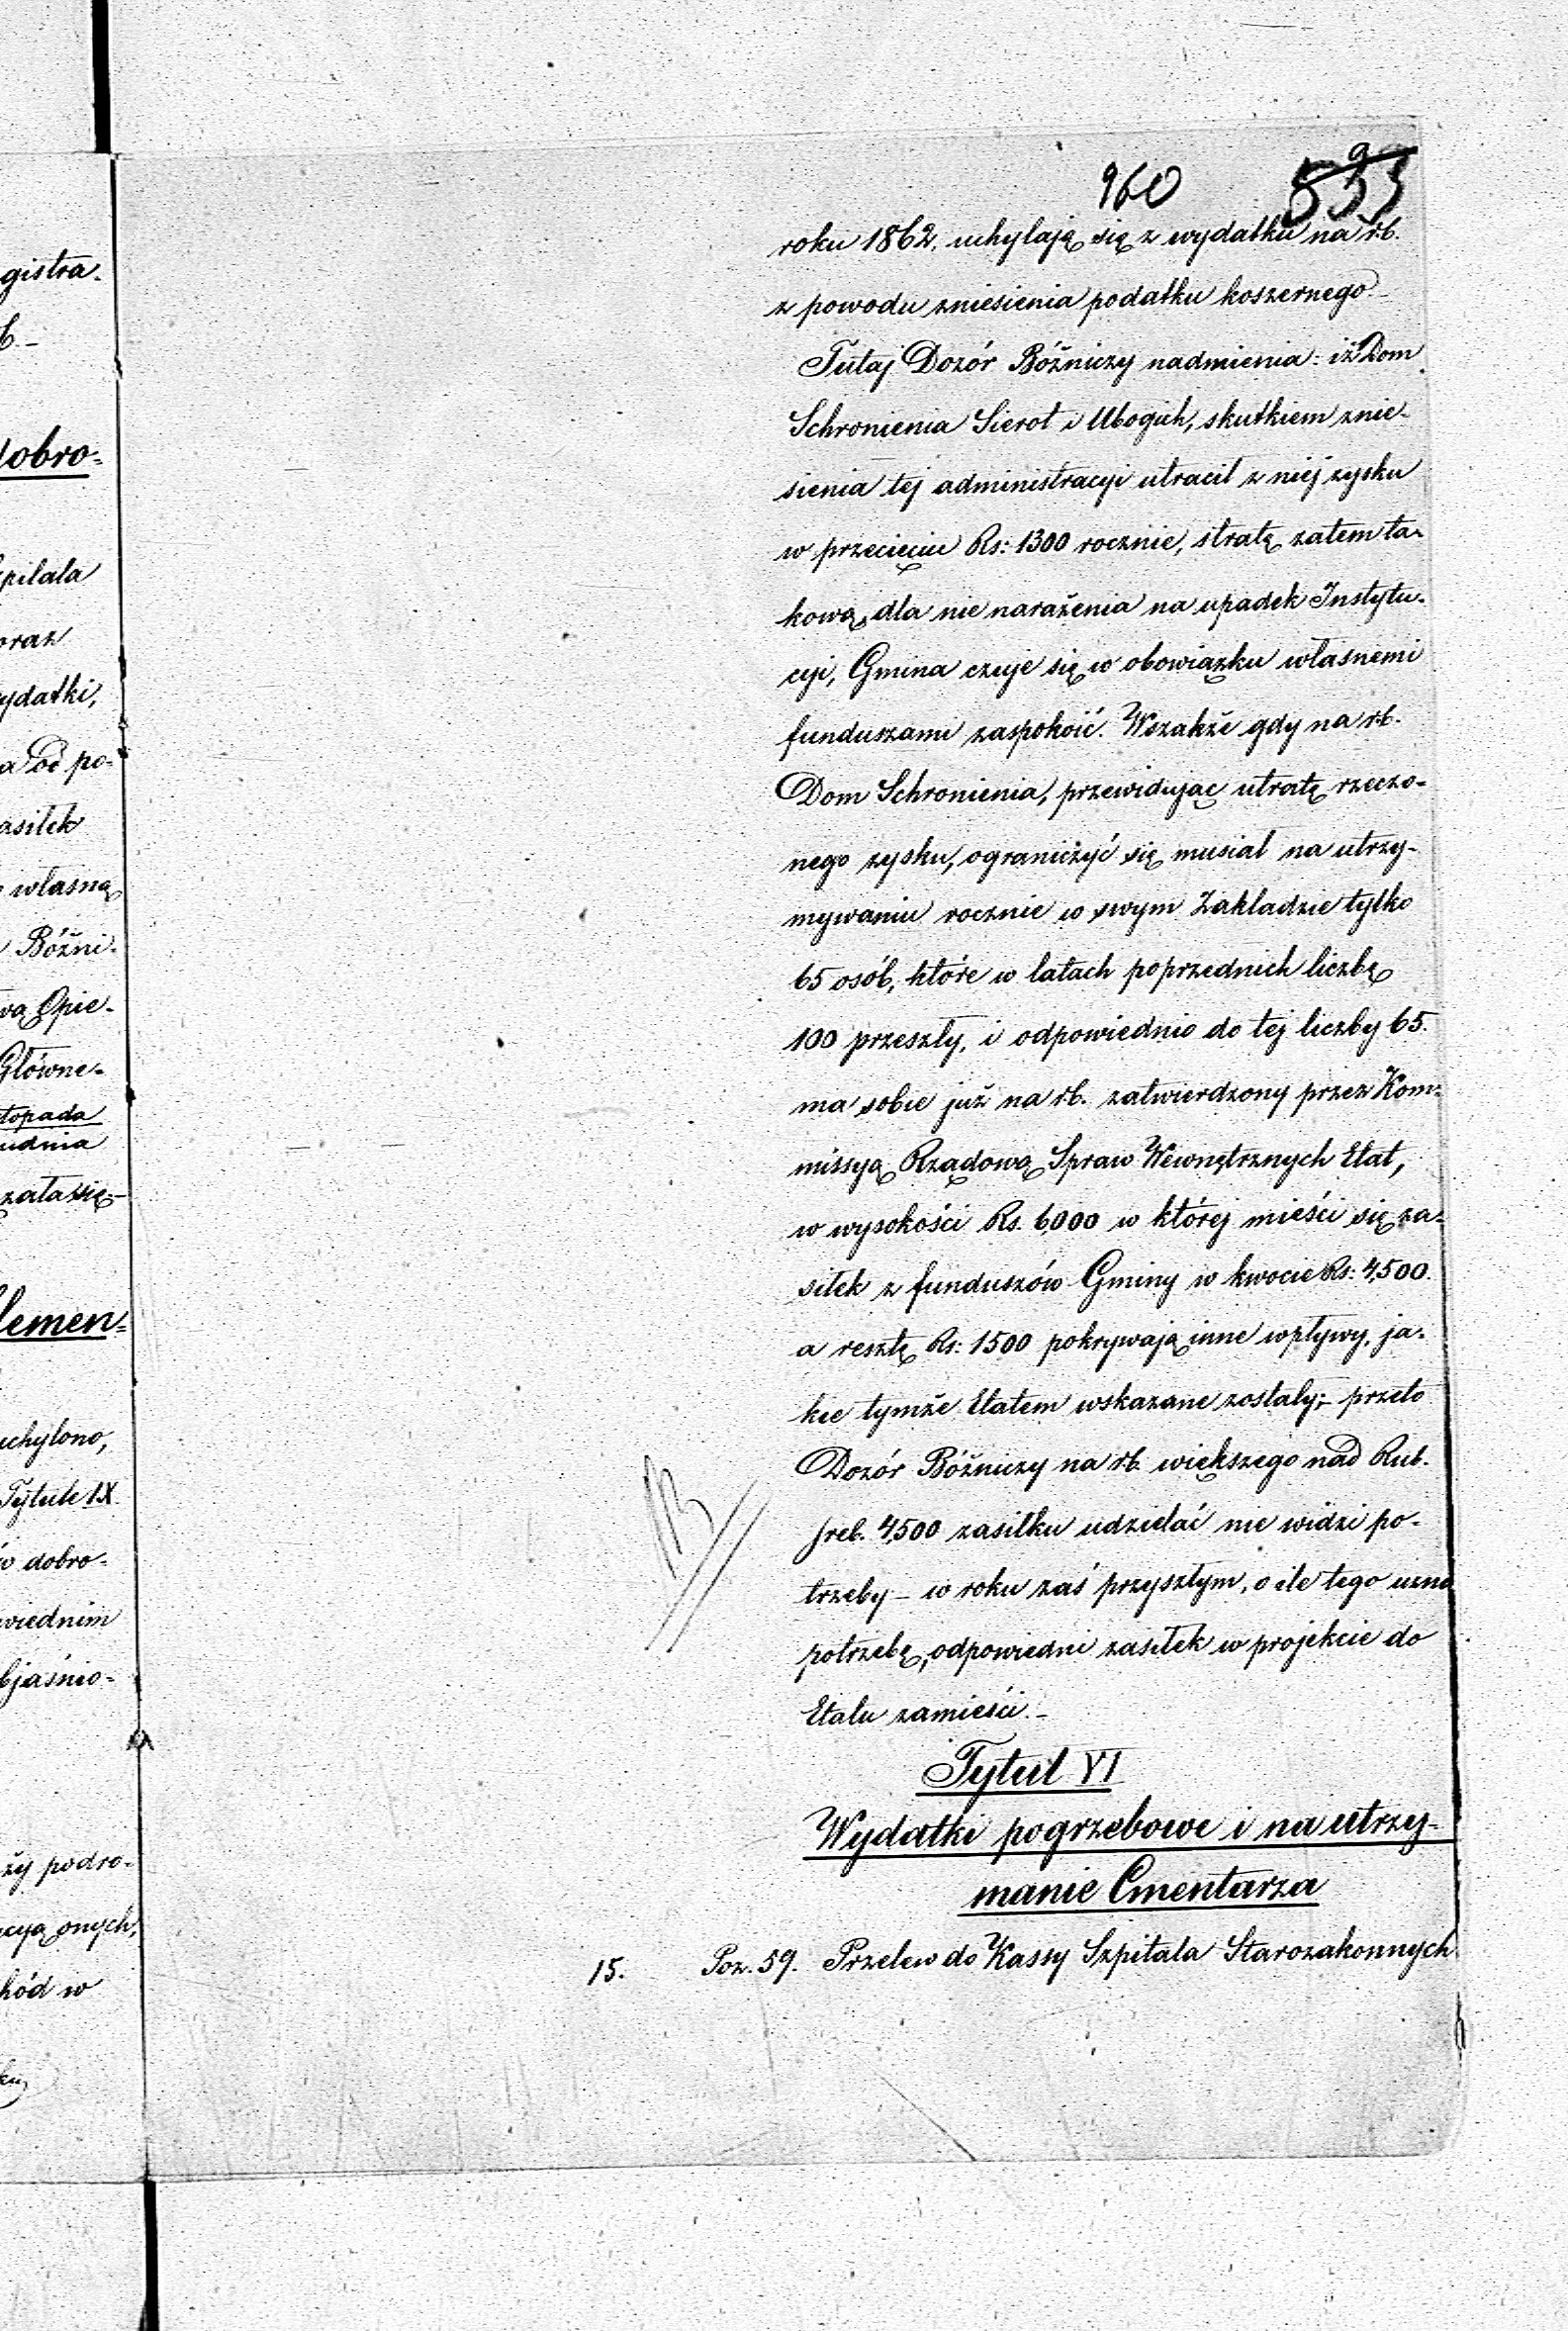 960
roku 1862, uchylają się z wydatku na r.b.
z powodu zniesienia podatku koszernego.-
Tutaj Dozór Bóżniczy nadmienia: iż Dom
Schronienia Sierot i Ubogich, skutkiem znie-
sienia tej administracyi utracił z niej zysku
w przecięciu Rs: 1300 rocznie, stratę zatem ta-
kową, dla nie narażenia na upadek Instytu-
cyi, Gmina czuje się w obowiązku własnemi
funduszami zaspokoić. Wszakże gdy na r.b.
Dom Schronienia, przewidując utratę rzeczo-
nego zysku, ograniczyć się musiał na utrzy-
mywaniu rocznie w swym Zakładzie tylko
65 osób, które w latach poprzednich liczbę
100 przeszły, i odpowiednio do tej liczby 65.
ma sobie już na r.b. zatwierdzony przez Kom-
missyą Rządową Spraw Wewnętrznych Etat,
w wysokości Rs. 6,000 w której mieści się za-
siłek z funduszów Gminy w kwocie Rs: 4,500.
a resztę Rs: 1500 pokrywają inne wpływy, ja-
kie tymże Etatem wskazane zostały;- przeto
Dozór Bóżniczy na r.b. większego nad Rub.
sreb. 4,500 zasiłku udzielać nie widzi po-
trzeby - w roku zaś przyszłym, o ile tego uzna
potrzebę, odpowiedni zasiłek w projekcie do
Etatu zamieści.-
Tytuł VI
Wydatki pogrzebowe i na utrzy-
manie Cmentarza
15. Poz. 59. Przelew do Kassy Szpitala Starozakonnych
gistra-
dobro-
zpitala
oraz
ydatki,
a od po-
asiłek
własną
Bóżni-
wą Opie-
Główne-
topada
udnia
zała się.-
lemen-
uchylono,
Tytule IX
w dobro-
wiednim
bjaśnio-
ży podro-
acyą onych,
hód w